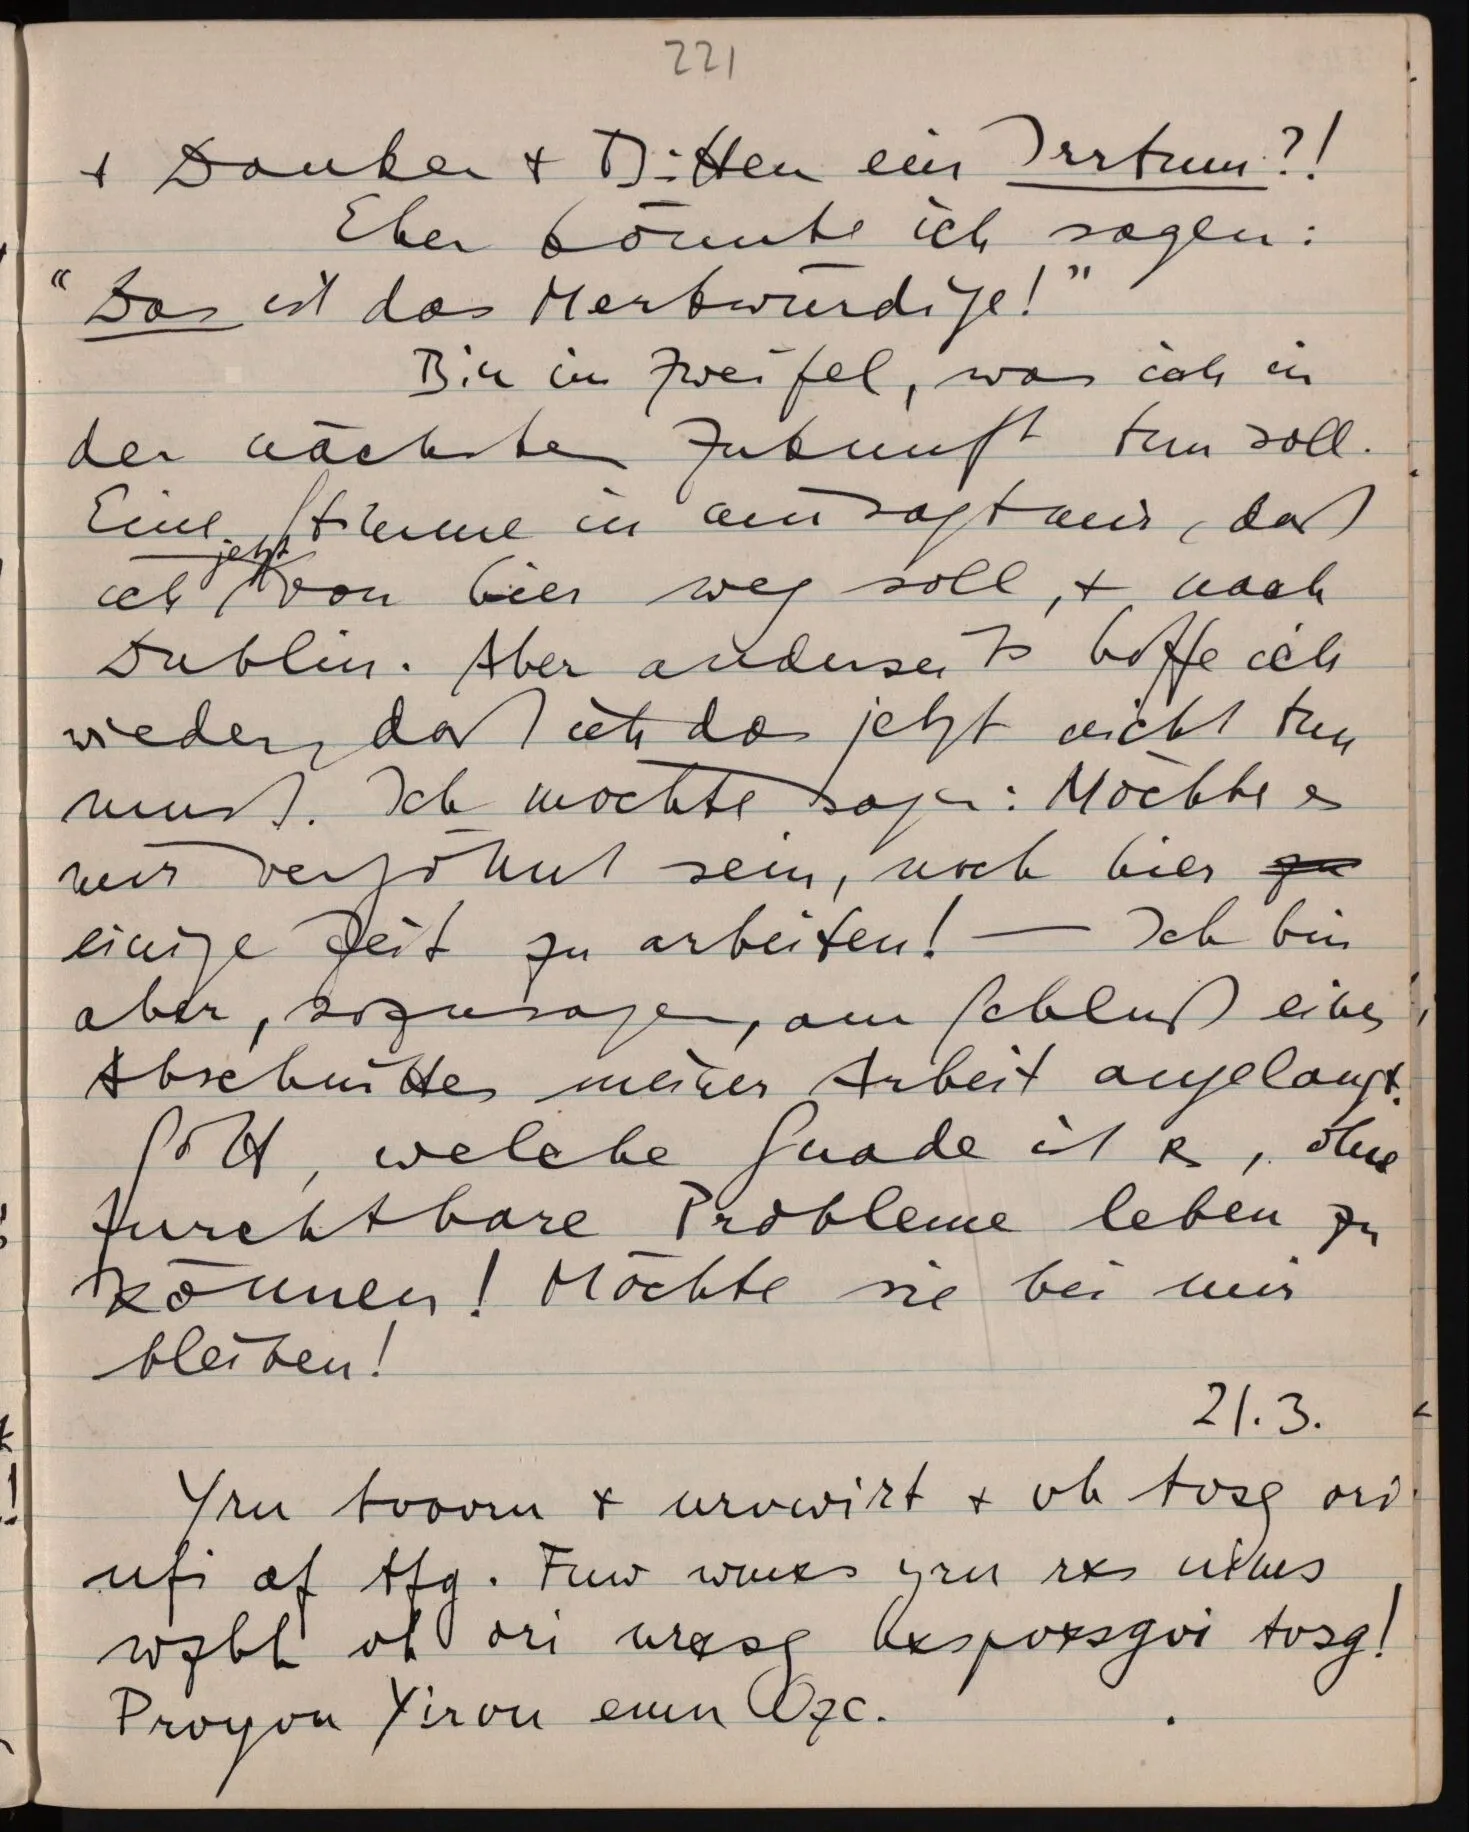 221
+ Danken + Bitten ein Irrtum?!
Eher könnte ich sagen:
“Das ist das Merkwürdige!”
Bin im Zweifel, was ich in
der nächsten Zukunft tun soll.
Eine Stimme in mir sagt mir, daß
ich jetzt von hier weg soll, + nach
Dublin. Aber anderseits hoffe ich
wieder, daß ich das jetzt nicht tun
muß. Ich möchte sagen: Möchte es
mir vergönnt sein, noch hier zu
einige Zeit zu arbeiten! — Ich bin
aber, sozusagen, am Schluß eines
Abschnittes meiner Arbeit angelangt.
Gott, welche Gnade ist es, ohne
furchtbare Probleme leben zu
können! Möchte sie bei mir
bleiben!
21.3.
Yrm tvnvrm + mrvwirt + vh tvsg nri
mfi af tfg. Fmw wlxs yrm rxs uils
wzhh vh nri mrxsg hxsovxsgvi tvsg!
Orvyvm Yirvu elm Nzc.